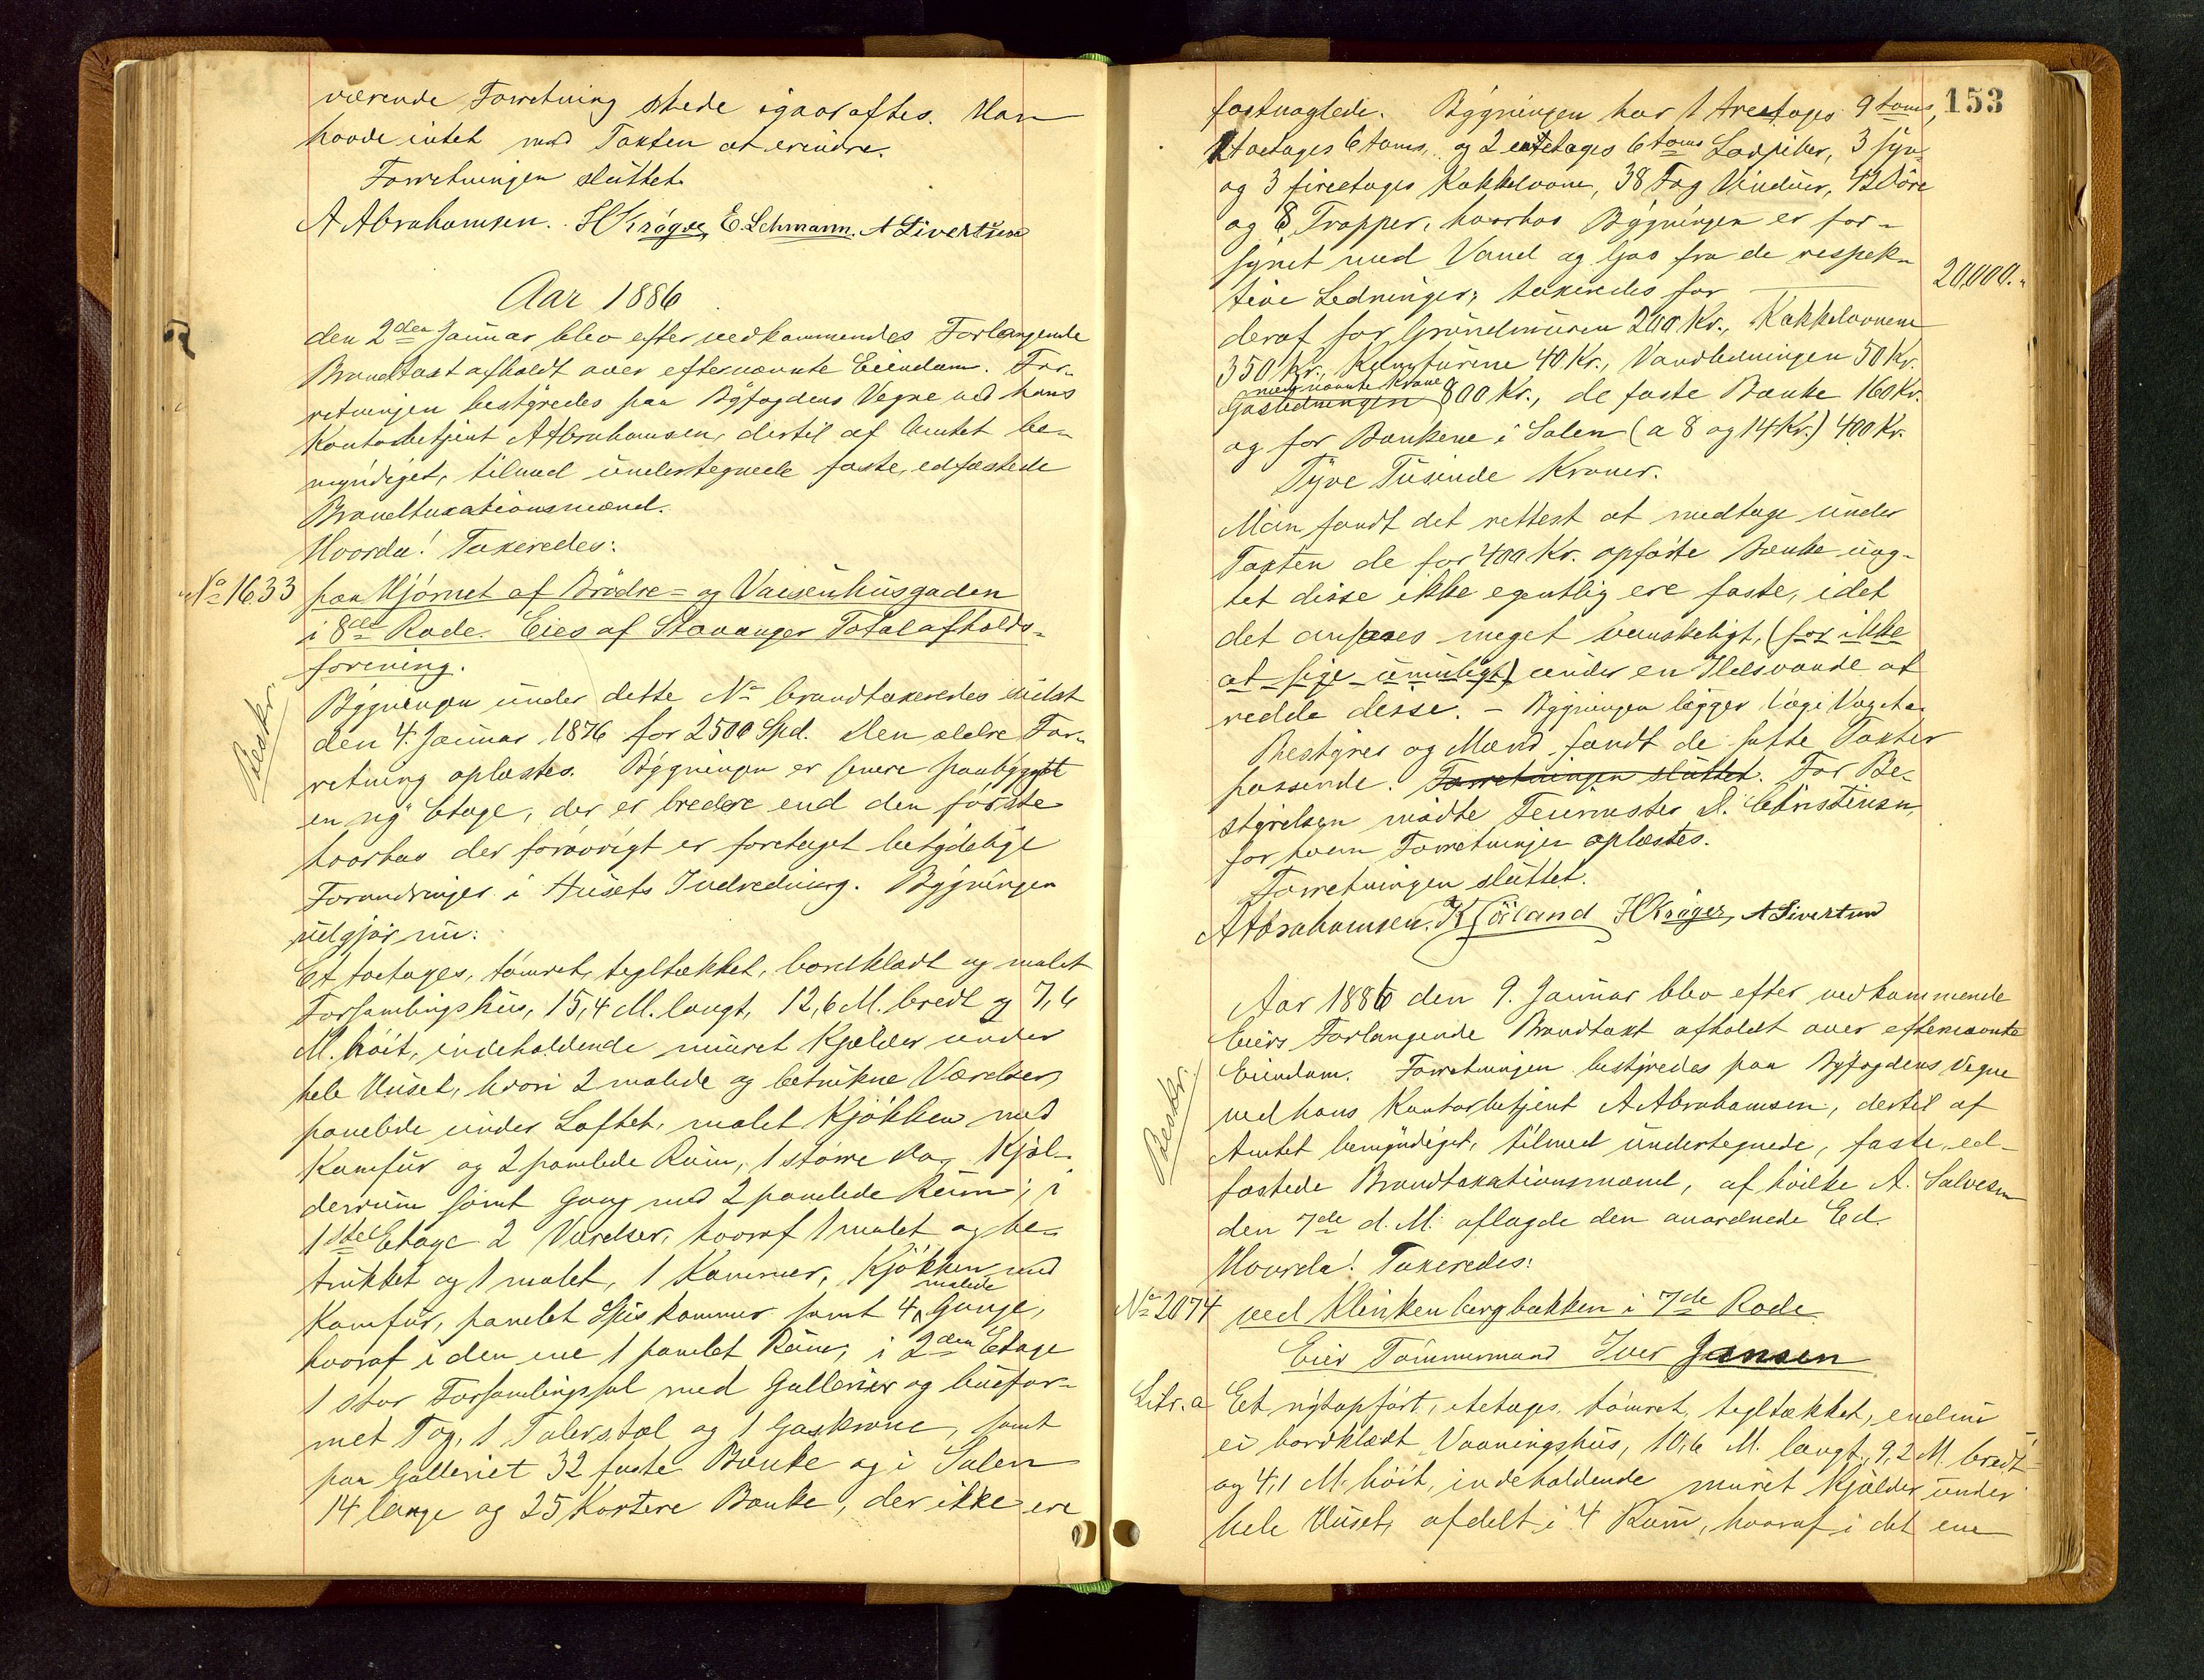 værende Forretning skede igaaraftes. Han
havde intet mod Taxten at erindre.
Forretningen sluttet.
A Abrahamsen. H Krøger, E. Lehmann. A Sivertsen
Aar 1886
den 2den Januar blev efter vedkommendes Forlangende
Brandtaxt afholdt over efternævnte Eiendom. For-
retningen bestyredes paa Byfogdens Vegne ved hans
Kontorbetjent A Abrahamsen, dertil af Amtet be-
myndiget, tilmed undertegnede faste, edfæstede
Brandtaxationsmænd.
Hvorda! Taxeredes:
No 1633 paa Hjørnet af Brødre- og Vaisenhusgaden
i 8de Rode. Eies af Stavanger Totalafholds-
forening.
Beskr.
Bygningen under dette No brandtaxeredes sidst
den 4. Januar 1876 for 2500 Spd. Den ældre For-
retning oplæstes. Bygningen er senere paabygget
en ny Etage, der er bredere end den første
hvorhos der forøvrigt er foretaget betydelige
Forandringer i Husets Indredning. Bygningen
udgjør nu:
Et toetages, tømret, tegltækket, bordklædt og malet
Forsamlingshus, 15,4 M. langt, 12,6 M. bredt og 7,6
M. høit, indeholdende muret Kjælder under
hele Huset, hvori 2 malede og betrukne Værelser,
panelede under Loftet, malet Kjøkken med
Komfur og 2 panelede Rum, 1 større og 1 Kjæl-
derrum samt Gang med 2 panelede Rum; i
1ste Etage 2 Værelser, hvoraf 1 malet og be-
trukket og 1 malet, 1 Kammer, Kjøkken med
Komfur, panelet Spiskammer samt 4 malede Gange,
hvoraf i den ene 1 panelet Rum; i 2den Etage
1 stor Forsamlingssal med Gallerier og buefor-
met Tag, 1 Talerstol og 1 Gaskrone, samt
paa Galleriet 32 faste Bænke og i Salen
14 lange og 25 Kortere Bænke, der ikke ere
153
fastnaglede. Bygningen har 1 treetages 9 toms,
1 toetages 6 toms, og 2 enetages 6 toms Lodpiber, 3 fyr
og 3 fireetages Kakkelovne, 38 Fag Vinduer, 42 Døre
og 8 Trapper, hvorhos Bygningen er for-
synet med Vand og Gas fra de respek-
tive Ledninger; taxeredes for 20,000.
deraf for Grundmuren 200 Kr., Kakkelovnene
350 Kr., Komfurene 40 Kr., Vandledningen 50 Kr.
Gasledningen med nævnte Krone 800 Kr., de faste Bænke 160 Kr.
og for Bænkene i Salen (a 8 og 14 Kr.) 400 Kr.
Tyve Tusinde Kroner.
Man fandt det rettest at medtage under
Taxten de for 400 Kr. opførte Bænke uag-
tet disse ikke egentlig ere faste, idet
det ansaaes meget vanskeligt, (for ikke
at sige umuligt) under en Ildsvaade at
redde disse. - Bygningen ligger i og i Vagt
Bestyrer og Mænd fandt de satte Taxter
passende. Forretningen sluttet. For Be-
styrelsen mødte Feiermester A. Christensen,
for hvem Forretningen oplæstes.
Forretningen sluttet.
A Abrahamsen. H Krøger, A Sivertsen
Aar 1886 den 9. Januar blev efter vedkommende
Eiers Forlangende Brandtaxt afholdt over efternævnte
Eiendom. Forretningen bestyredes paa Byfogdens Vegne
ved hans Kontorbetjent A Abrahamsen, dertil af
Amtet bemyndiget, tilmed undertegnede, faste, ed-
fæstede Brandtaxationsmænd, af hvilke A. Salvesen
den 7de d. M. aflagde den anordnede Ed.
Beskr.
Hvorda! Taxeredes:
No 2074 ved Klinkenbergbækken i 7de Rode
Eier Tømmermand Iver Jansen
Litr. a Et nytopført, etetages, tømret, tegltækket, endnu
ei bordklædt Vaaningshus, 10,6 M. langt, 9,2 M. bredt
og 4,1 M. høit, indeholdende muret Kjælder under
hele Huset, afdelt i 4 Rum, hvoraf i det ene